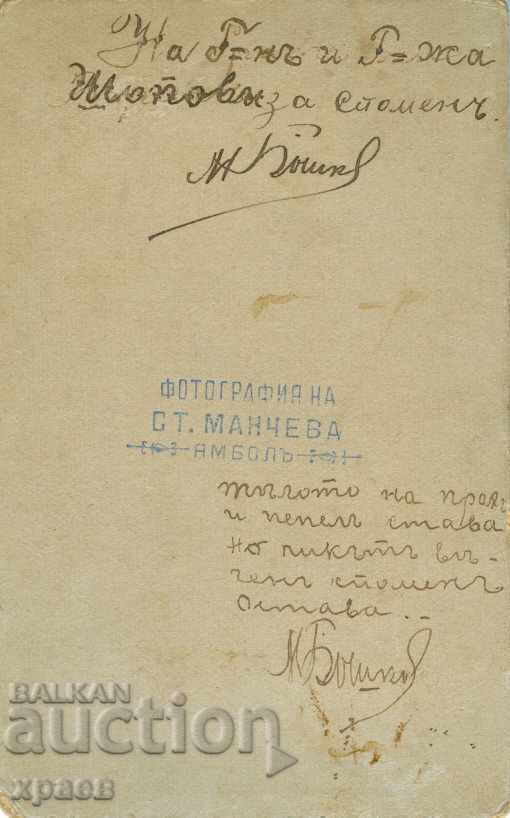 На Г=нъ и Г=жа
Шопови за споменъ.
М Бошков
ФОТОГРАФИЯ НА
СТ. МАНЧЕВА
ЯМБОЛЪ
тѣлото на прахъ
и пепелъ става
но ликътъ въ-
ченъ споменъ
остава...
М Бошков
BALKAN
auction
храсв